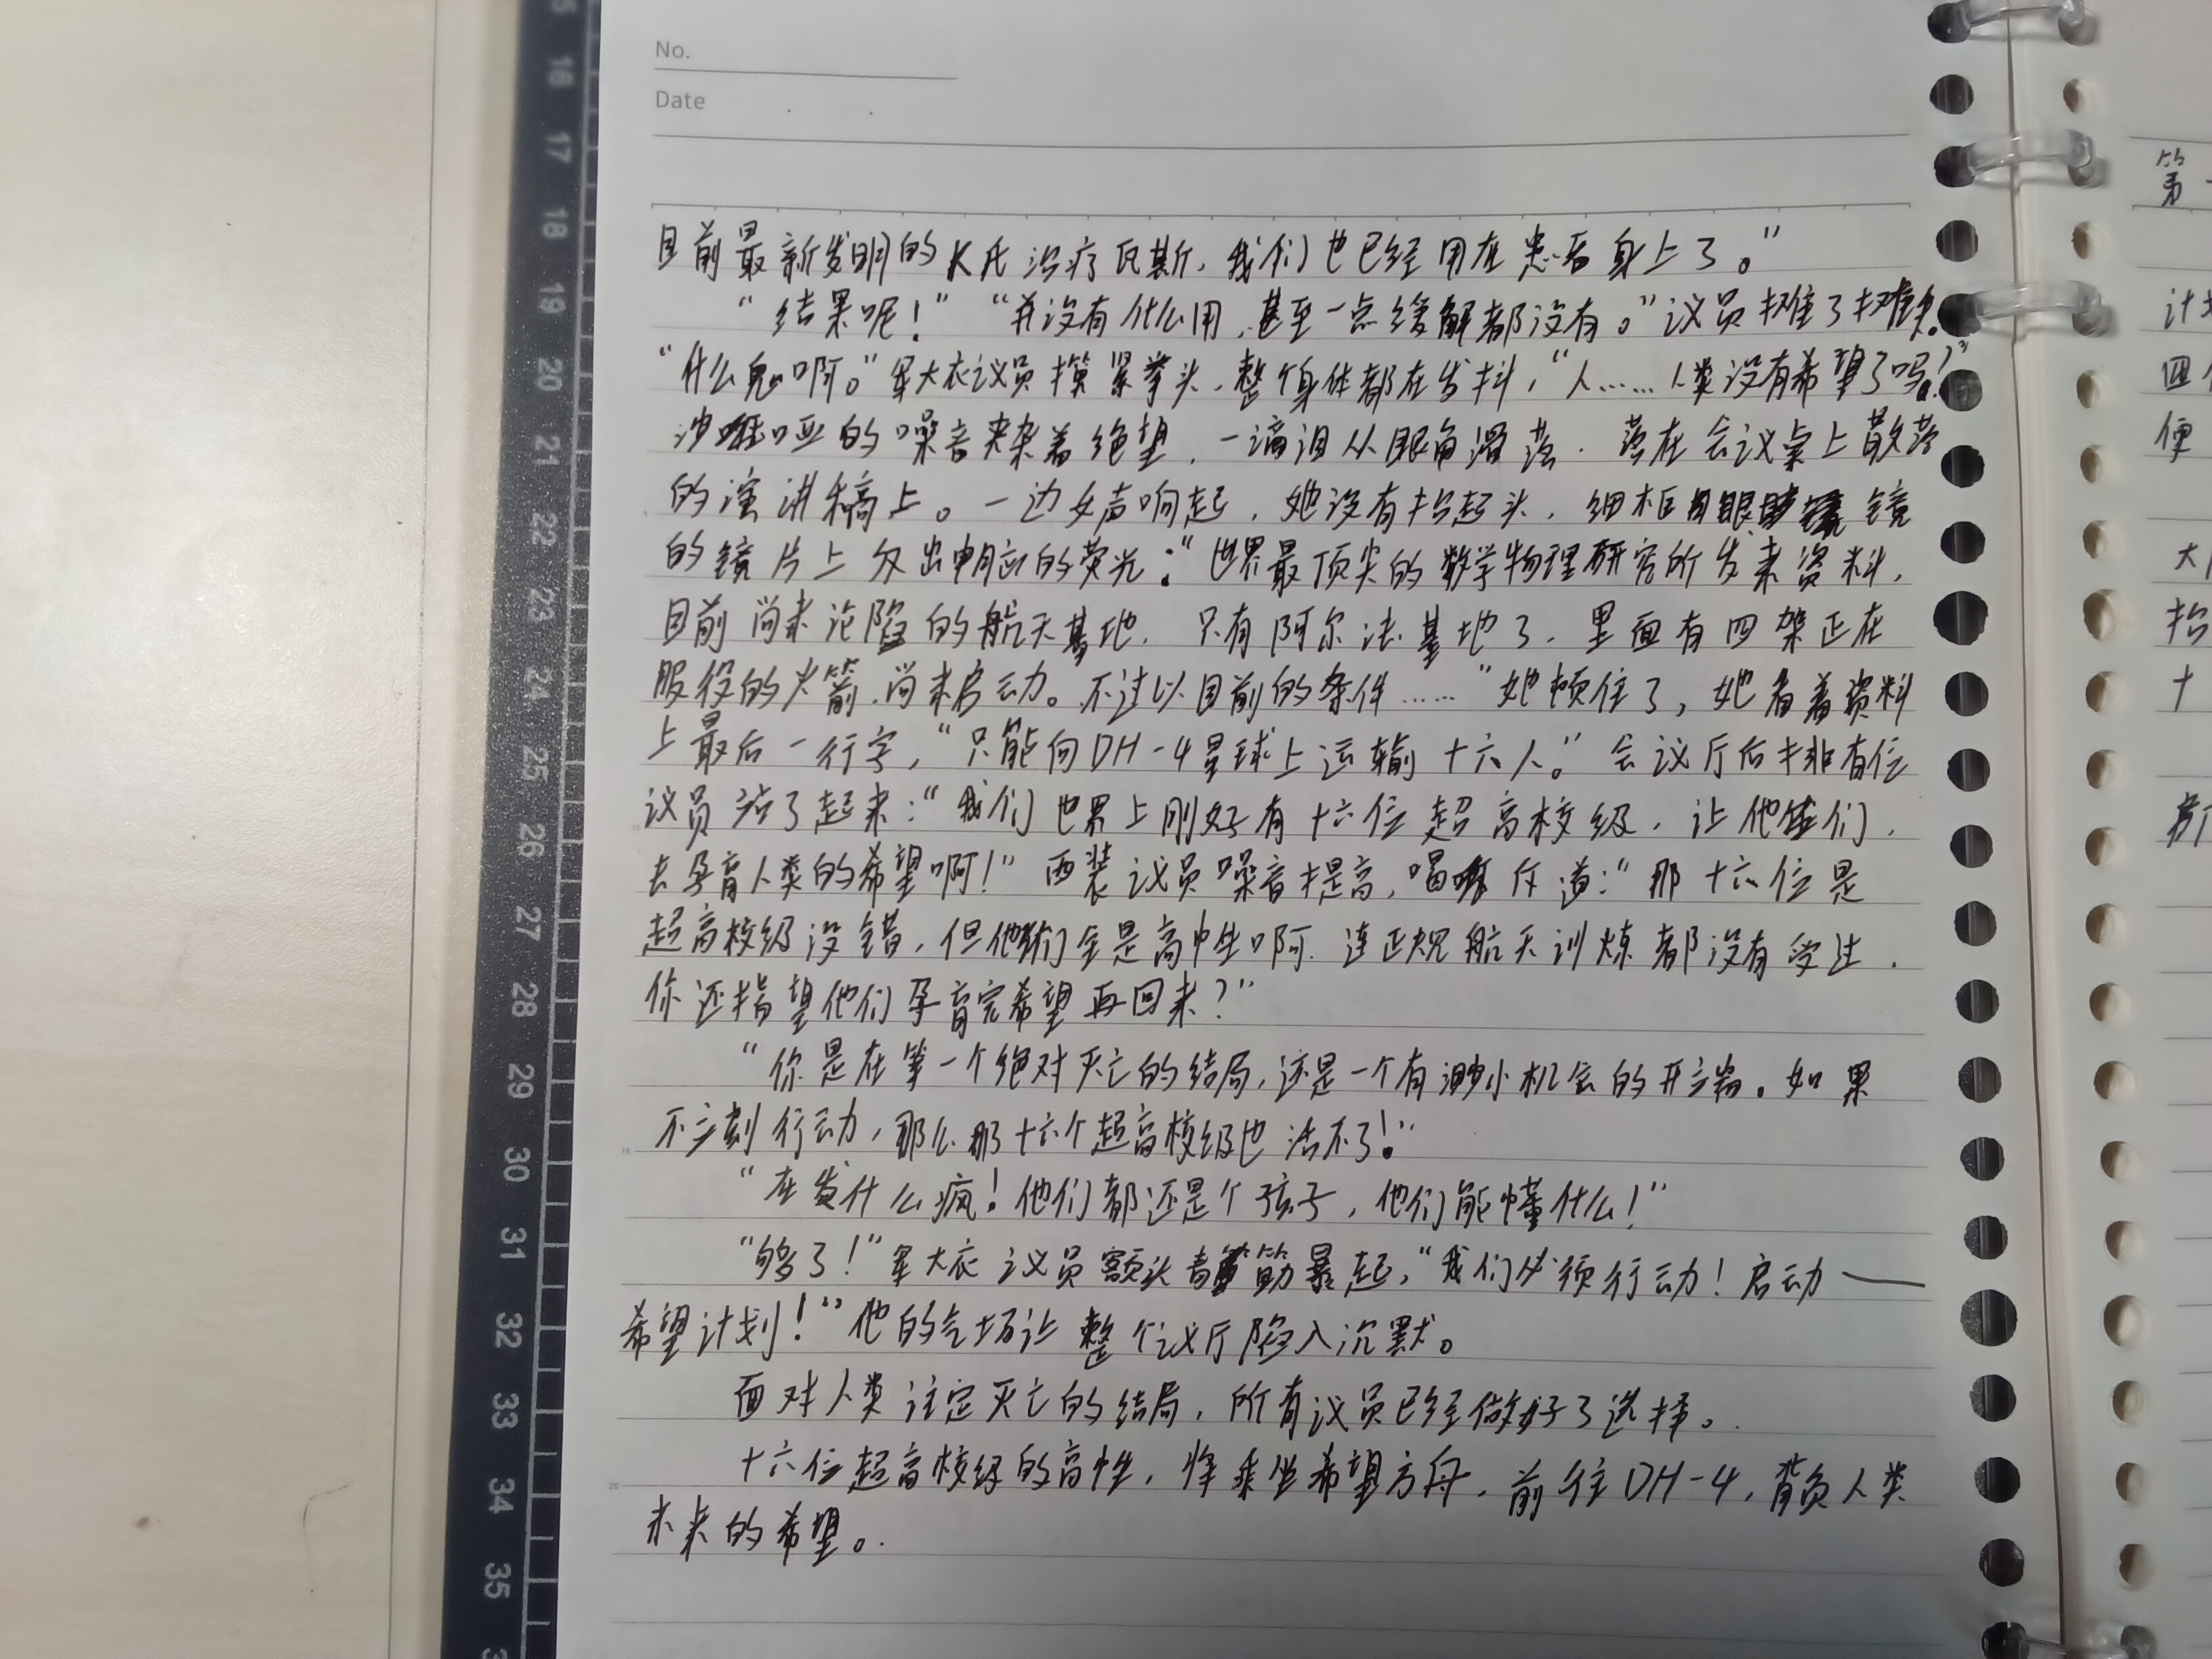 No.
Date
目前最新发明的K氏治疗瓦斯，我们也已经用在患者身上了。”
“结果呢！”“并没有什么用，甚至一点缓解都没有。”议员摊了摊手。
“什么鬼啊。”军大衣议员攥紧拳头，整个身体都在发抖，“人……人类没有希望了吗！”
沙哑的嗓音夹杂着绝望，一滴泪从眼角滑落，落在会议桌上散落
的演讲稿上。一边女声响起，她没有抬起头，细框眼镜
的镜片上反出电脑的荧光：“世界最顶尖的数学物理研究所发来资料，
目前尚未沦陷的航天基地，只有阿尔法基地了，里面有四架正在
服役的火箭，尚未启动。不过以目前的条件……”她顿住了，她看着资料
上最后一行字，“只能向DH-4星球上运输十六人。”会议厅后排有位
议员站了起来：“我们世界上刚好有十六位超高校级，让他们，
去孕育人类的希望啊！”西装议员嗓音提高，喝斥道：“那十六位是
超高校级没错，但他们全是高中生啊，连正规航天训练都没有受过，
你还指望他们孕育完希望再回来？”
“你是在等一个绝对灭亡的结局，还是一个有渺小机会的开端。如果
不立刻行动，那么那十六个超高校级也活不了！”
“在发什么疯！他们都还是个孩子，他们能懂什么！”
“够了！”军大衣议员额头青筋暴起，“我们必须行动！启动——
希望计划！”他的气场让整个议厅陷入沉默。
面对人类注定灭亡的结局，所有议员已经做好了选择。
十六位超高校级的高中生，将乘坐希望方舟，前往DH-4，背负人类
未来的希望。
第一
计划
四
便
大
抬
十